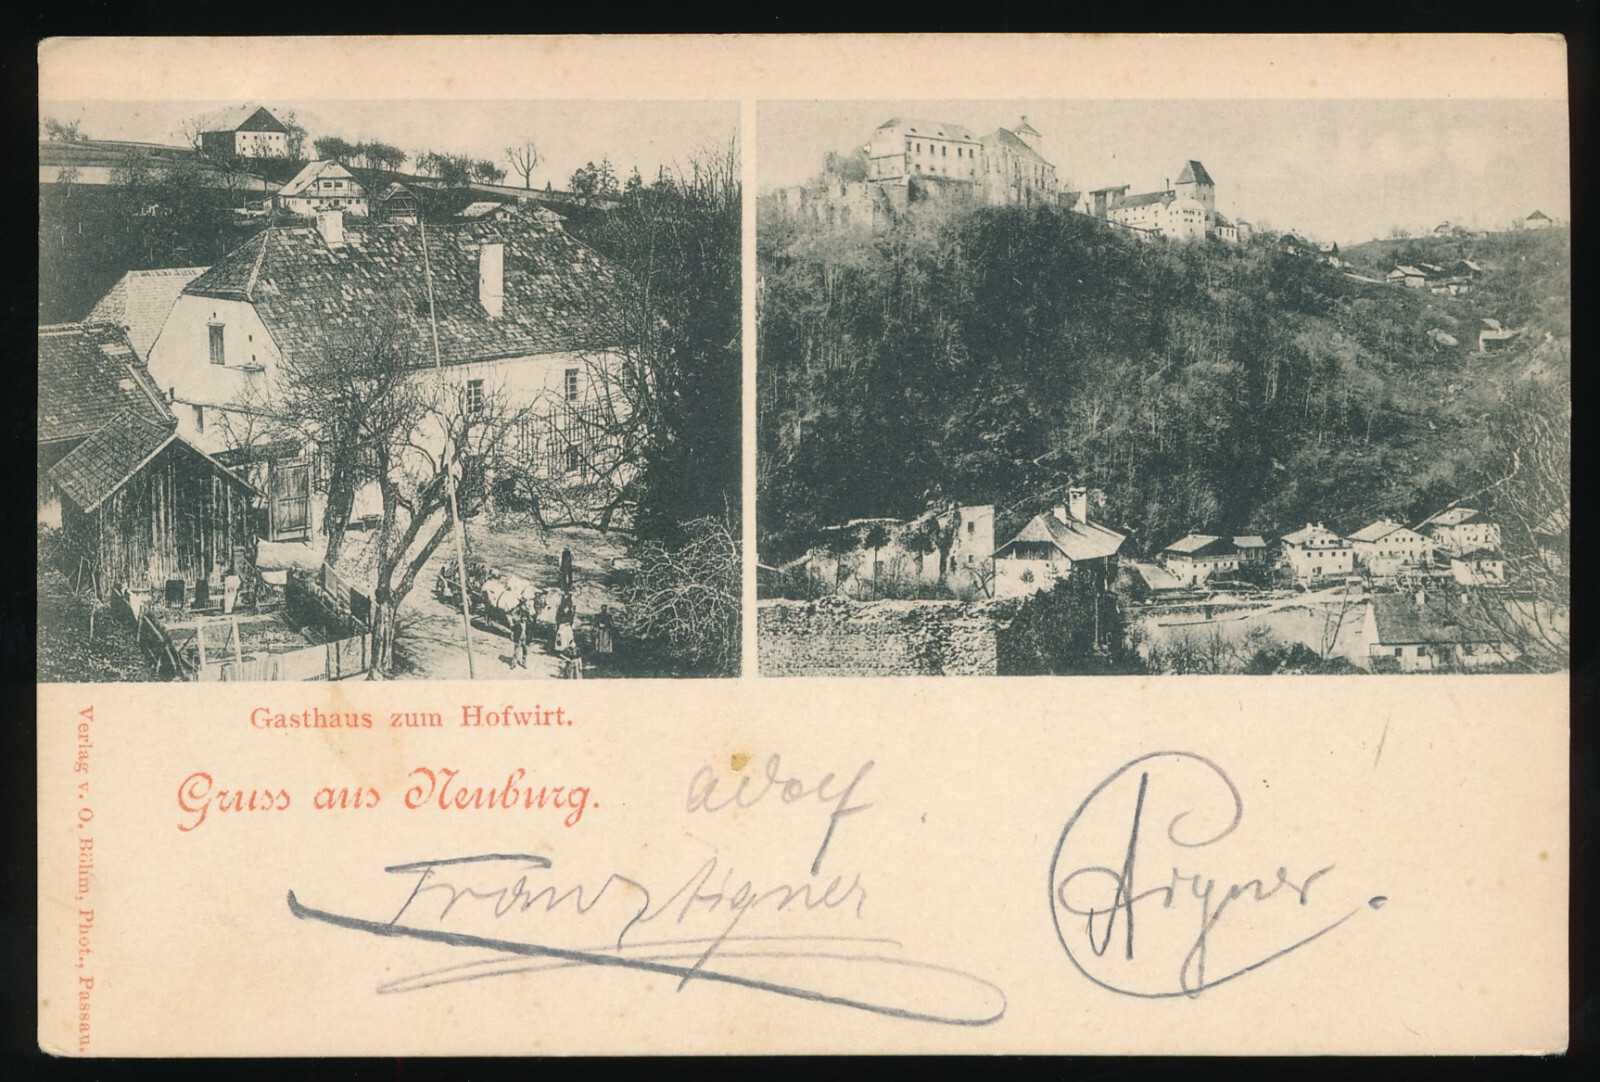 Gasthaus zum Hofwirt.
Gruss aus Neuburg.
Verlag v. O. Böhm, Phot., Passau.
Adolf
Franz Aigner
Aigner.